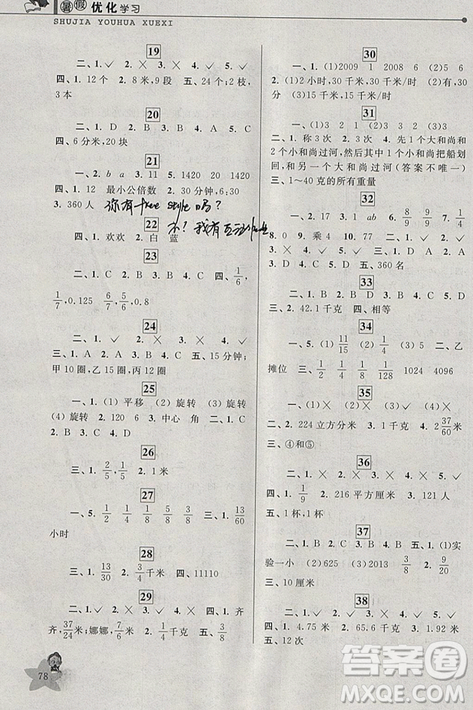 暑假优化学习
SHUJIA YOUHUA XUEXI
19
二、1. ✓ 2. ✓ 3. ✕ 三、1. D 2. B 3. C
四、1. 5分米 2. 8米,9段 五、24个;2支,
3本
20
二、1. D 2. A 3. D 4. D 5. A 6. C
四、6分米,20块
21
一、2. b a b 5. 1420 三、2. ✓
四、1. 12 最小公倍数 2. 30分钟,6;30
3. 360人 你有free style吗?
22
不!我有
四、1. 欢欢 2. 白 蓝
23
三、1. C 2. B 3. B 4. C 四、1/6,
1/57,0.125 五、1. 8/9 2. 6/7 3. 5/8
24
二、1. ✓ 2. ✓ 3. ✕ 4. ✕ 5. ✓
三、1. A 2. A 3. B 4. C 五、15分钟;
甲10圈,乙12圈,丙15圈
25
一、1. (1)平移 (2)旋转 (3)旋转
(4)旋转 2. 120 6 3. 中心 角 二、1. B
2. C 3. D 四、2. 旋转
26
三、1. 2/5, 1/5 2. 1米
27
一、5. 1/2 1/4 1/8 5/8 3/8 三、1/3
小时
28
三、1. 13/30 2. 11/15 四、11110
29
二、1. ✓ 2. ✕ 3. ✓ 4. ✕ 四、1. 齐
齐,37/24米;娜娜,7/10米 2. 1千克 五、6段
78
30
一、1. (1)2009 (2)1 8 (3)2 5 6 8
二、1. (1)2小时,30千米 (2)15千米/时 2. (2)有,
30分 (3)15千米,30千米/时
31
一、1. (1)3 (2)1 2 (3)1 2 3
二、1. 称3次 2. 称3次 4. 先1个大和尚
带2个小和尚过河,再由小和尚把船划
回,2个大和尚过河(答案不唯一)
三、1~40克的所有重量
32
一、2. 1 3. 1 ab 6. 8/9 9/8
8. 0 9. 乘4 10. 77 二、1. ✕ 2. ✓
3. ✕ 4. ✓ 5. ✕ 五、360名
33
一、1. D 2. A 3. B 4. B
三、2. 42千克 四、相等
34
一、5. (1)11/15 (2)1/2 二、1. ✕ 2. ✓
3. ✕ 4. ✕ 5. ✓ 三、1. A 2. B 3. A、乙
摊位 三、1/2 1/4 1/8 1024 4096
35
一、1. D 2. B 3. C 4. B 5. C
二、2. 224立方分米 3. 2.1千克 4. 2 37/60
三、④和⑤
36
二、1. ✓ 2. ✕ 3. ✓ 4. ✕ 5. ✕
四、1. 1/9 2. 216平方厘米 3. 121人
五、1杯,1杯
37
二、1. B 2. C 3. B 4. A 五、(1)实
验一小 (2)625 (3)2013 (4)2 (5)不能
三、10厘米
38
三、1. ✕ 2. ✓ 3. ✓ 4. ✓
四、1. 4.75米 2. 150米 3. 4.5克
答案圈
MXQE.COM